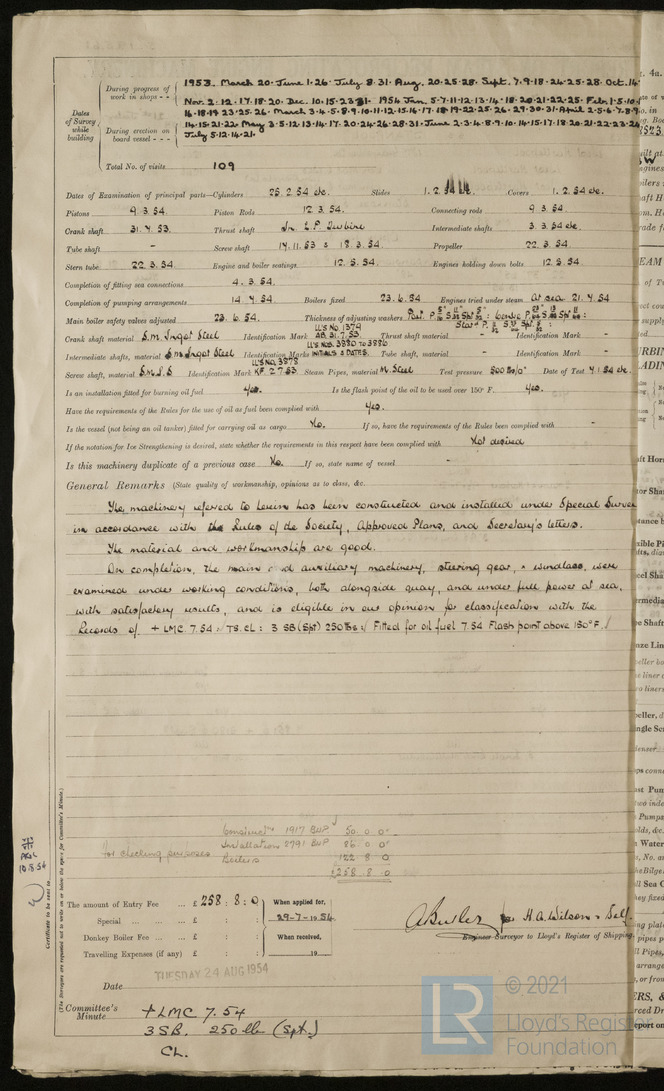 1953. March 20. June 1. 26. July 8. 31. Aug. 20. 25. 28. Sept. 7. 9. 18. 24. 25. 28. Oct. 14
During progress of work in shops - -
Nov. 2. 12. 17. 18. 20. Dec. 10. 15. 23 1954 Jan. 5. 7. 11. 12. 13. 14. 18. 20. 21. 22. 25. Feb. 1. 5. 10.
Dates of Survey while building
16. 18. 19. 23. 25. 26. March 3. 4. 5. 8. 9. 10. 11. 12. 15. 16. 17. 18. 19. 22. 25. 26. 29. 30. 31. April 2. 5. 6. 7. 8. 9.
During erection on board vessel - - -
14. 15. 21. 22. May 3. 5. 12. 13. 14. 17. 20. 24. 26. 28. 31. June 2. 3. 4. 8. 9. 10. 14. 15. 17. 18. 20. 21. 22. 23. 24
July 5. 12. 14. 21.
Total No. of visits 109
Dates of Examination of principal parts—Cylinders 25. 2. 54 etc. Slides 1. 2. 54 Covers 1. 2. 54 etc.
Pistons 9. 3. 54. Piston Rods 12. 3. 54. Connecting rods 9. 3. 54
Crank shaft 31. 7. 53. Thrust shaft In L.P Turbine Intermediate shafts 3. 3. 54 etc.
Tube shaft - Screw shaft 17. 11. 53 & 18. 3. 54. Propeller 22. 3. 54.
Stern tube 22. 3. 54. Engine and boiler seatings 12. 5. 54. Engines holding down bolts 12. 5. 54
Completion of fitting sea connections 4. 3. 54.
Completion of pumping arrangements 14. 7. 54. Boilers fixed 23. 6. 54 Engines tried under steam At sea 21. 7. 54
Main boiler safety valves adjusted 23. 6. 54. Thickness of adjusting washers
Crank shaft material S.M. Ingot Steel Identification Mark LL'S No. 1374 AB. 31. 7. 53. Thrust shaft material - Identification Mark -
Intermediate shafts, material S.M. Ingot Steel Identification Marks LL'S NOS. 3880 TO 3886 INITIALS & DATES. Tube shaft, material - Identification Mark -
Screw shaft, material S.M.I.S Identification Mark LL'S No. 3878 Steam Pipes, material M. Steel Test pressure 500 lbs/□" Date of Test 7. 1. 54 etc.
Is an installation fitted for burning oil fuel Yes. Is the flash point of the oil to be used over 150° F. Yes.
Have the requirements of the Rules for the use of oil as fuel been complied with Yes.
Is the vessel (not being an oil tanker) fitted for carrying oil as cargo No. If so, have the requirements of the Rules been complied with -
If the notation for Ice Strengthening is desired, state whether the requirements in this respect have been complied with Not desired
Is this machinery duplicate of a previous case No. If so, state name of vessel -
General Remarks (State quality of workmanship, opinions as to class, &c.
The machinery referred to herein has been constructed and installed under Special Survey
in accordance with the Rules of the Society, Approved Plans, and Secretary's letters.
The material and workmanship are good.
On completion, the main and auxiliary machinery, steering gear, & windlass, were
examined under working conditions, both alongside quay, and under full power at sea,
with satisfactory results, and is eligible in our opinion for classification with the
Records of + LMC 7. 54 TS. CL : 3 SB (Spt) 250 lbs : Fitted for oil fuel 7. 54 Flash point above 150° F.
Construct'n 1917 BHP 50. 0. 0
for checking purposes Installation 2791 BHP 86. 0. 0
Boilers 122. 8. 0
£258. 8. 0
The amount of Entry Fee ... £ 258 : 8 : 0 When applied for,
Special ... ... £ : : 29-7-1954
Donkey Boiler Fee ... ... £ : : When received,
Travelling Expenses (if any) £ : : 19
A Butler for H. A. Wilson & Self
Engineer Surveyor to Lloyd's Register of Shipping.
TUESDAY 24 AUG 1954
Date
Committee's Minute
+ LMC 7. 54
3 SB. 250 lb (Spt.)
CL.
Certificate to be sent to
(The Surveyors are requested not to write on or below the space for Committee's Minute.)
© 2021
LR
Lloyd's Register
Foundation